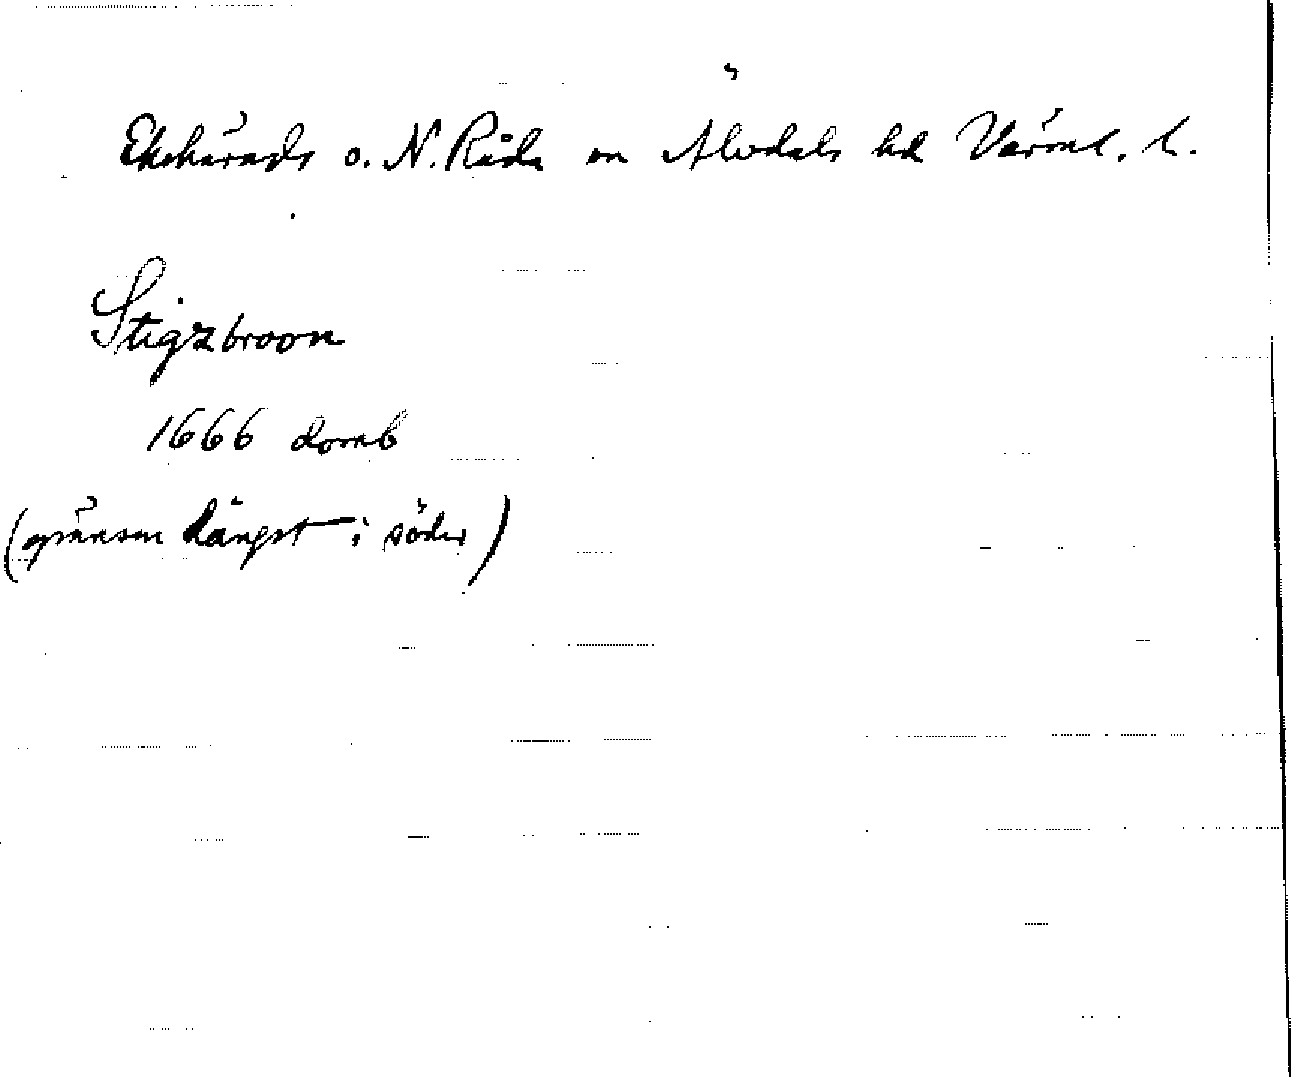 Ekshärads o. N. Råda sn Älvdals hd Värml. l.
Stigzbroon
1666 domb
(gränsen längst i söder)